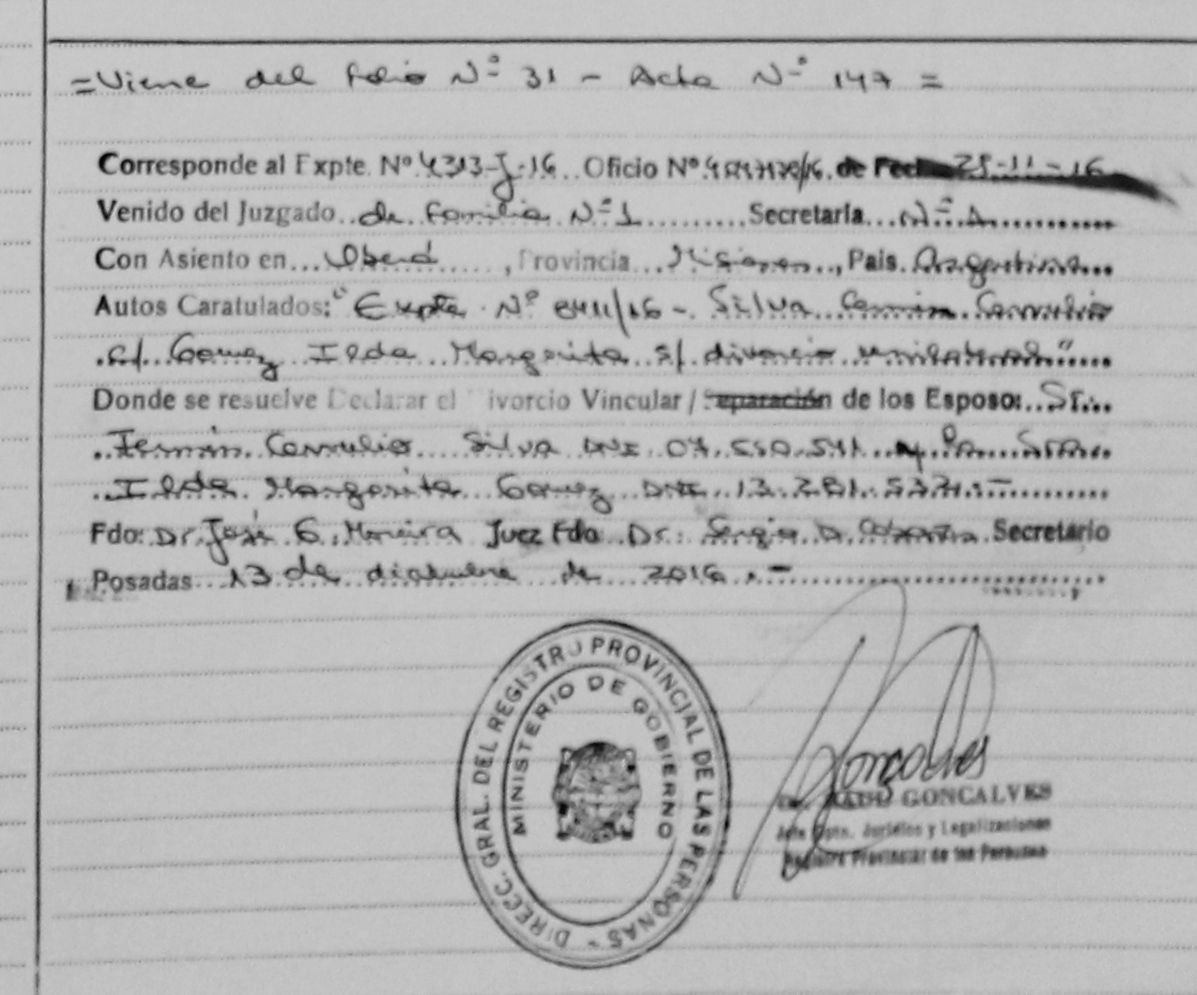 =Viene del folio Nº 31 - Acta Nº 147 =
Corresponde al Expte. Nº 4313-J-16 Oficio Nº de Fecha 25-11-16
Venido del Juzgado de Familia Nº 1 Secretaria Nº 1
Con Asiento en Oberá, Provincia Misiones, Pais Argentina
Autos Caratulados: "Expte. Nº 8411/16 - Silva Fermin Cornelio
c/ Gomez Ilda Margarita s/ divorcio unilateral"
Donde se resuelve Declarar el Divorcio Vincular / Separación de los Esposos: Sr.
Fermín Cornelio Silva DNI 07.550.541 y la Sra.
Ilda Margarita Gomez DNI 13.281.537.-
Fdo: Dr. José G. Moreira Juez Fdo Dr. Sergio D. Secretario
Posadas 13 de diciembre de 2016.-
DIRECC. GRAL. DEL REGISTRO PROVINCIAL DE LAS PERSONAS -
MINISTERIO DE GOBIERNO
Goncalves
Dr. RAUL GONCALVES
Jefe Dpto. Jurídico y Legalizaciones
Registro Provincial de las Personas